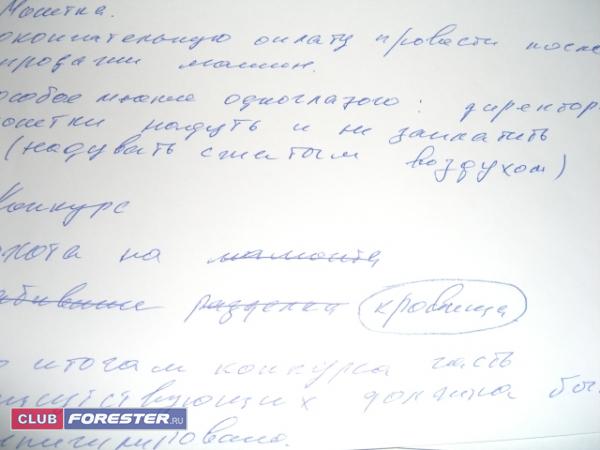 Моштка.
окончательную оплату провести после
продажи машин.
особое мнение одноглазого: директор
моштки надуть и не заплатить
(надувать сжатым воздухом)
Конкурс
охота на мамонта
разделка кровища
по итогам конкурса часть
присутствующих должна бы
CLUB FORESTER.RU